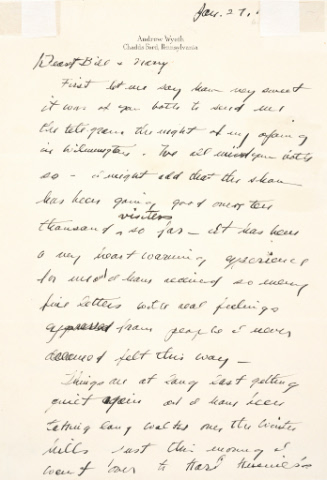 Jan. 27,
Andrew Wyeth
Chadds Ford, Pennsylvania
Dearest Bill & Mary
First let me say how very sweet
it was of you both to send me
the telegram the night of my opening
in Wilmington. We all missed you both
so – I might add that the show
has been going good over ten
visitors
thousand so far – it has been
a very heart warming experience
for me I have received so many
fine letters with real feelings
from people I never
dreamed felt this way –
Things are at long last getting
quiet again and I have been
taking long walks over the winter
hills just this morning I
went over to Karl